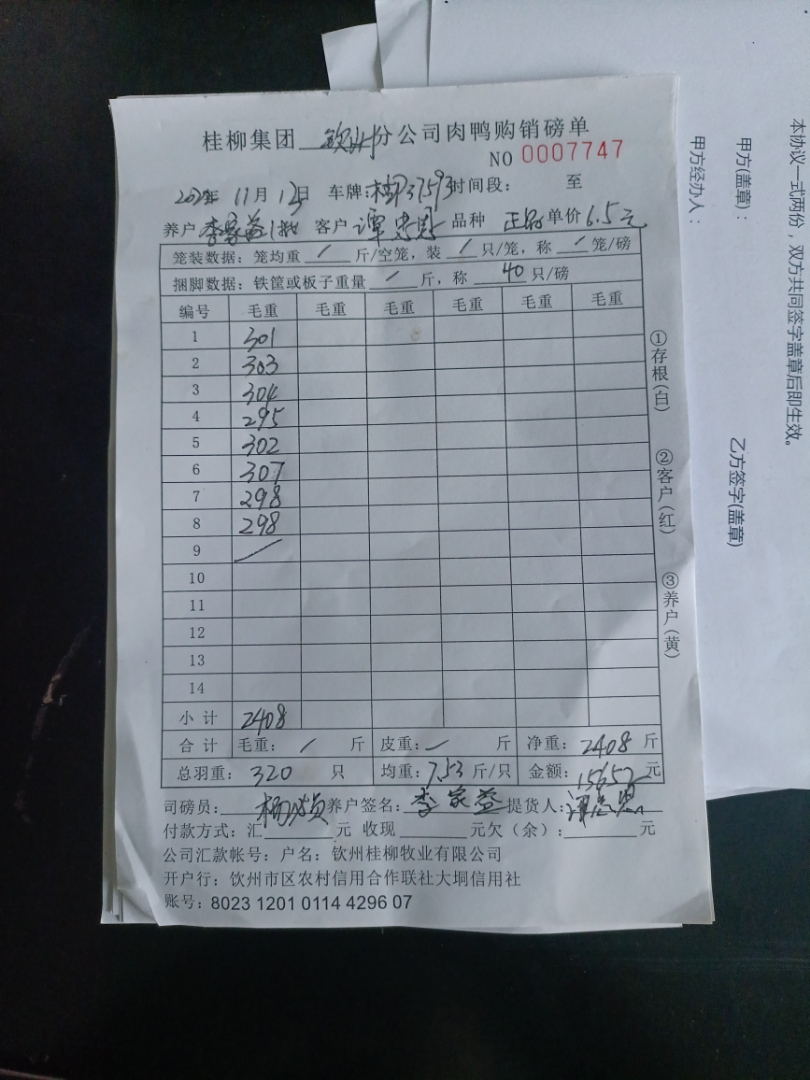 桂柳集团 钦州 分公司肉鸭购销磅单
NO 0007747
11月12日 车牌: 37593 时间段: 至
养户 李家益1批 客户 谭忠恩 品种 正品 单价 6.5元
笼装数据: 笼均重 / 斤/空笼, 装 / 只/笼, 称 / 笼/磅
捆脚数据: 铁筐或板子重量 / 斤, 称 40 只/磅
编号 毛重 毛重 毛重 毛重 毛重 毛重
1 301
2 303
3 304
4 295
5 302
6 307
7 298
8 298
9 /
10
11
12
13
14
小计 2408
合计 毛重: / 斤 皮重: / 斤 净重: 2408 斤
总羽重: 320 只 均重: 7.53 斤/只 金额: 15652 元
司磅员: 养户签名: 李家益 提货人: 谭忠恩
付款方式: 汇 元 收现 元欠(余): 元
公司汇款帐号: 户名: 钦州桂柳牧业有限公司
开户行: 钦州市区农村信用合作联社大垌信用社
账号: 8023 1201 0114 4296 07
①存根(白)
②客户(红)
③养户(黄)
本协议一式两份，双方共同签字盖章后即生效。
甲方(盖章):
乙方签字(盖章)
甲方经办人: